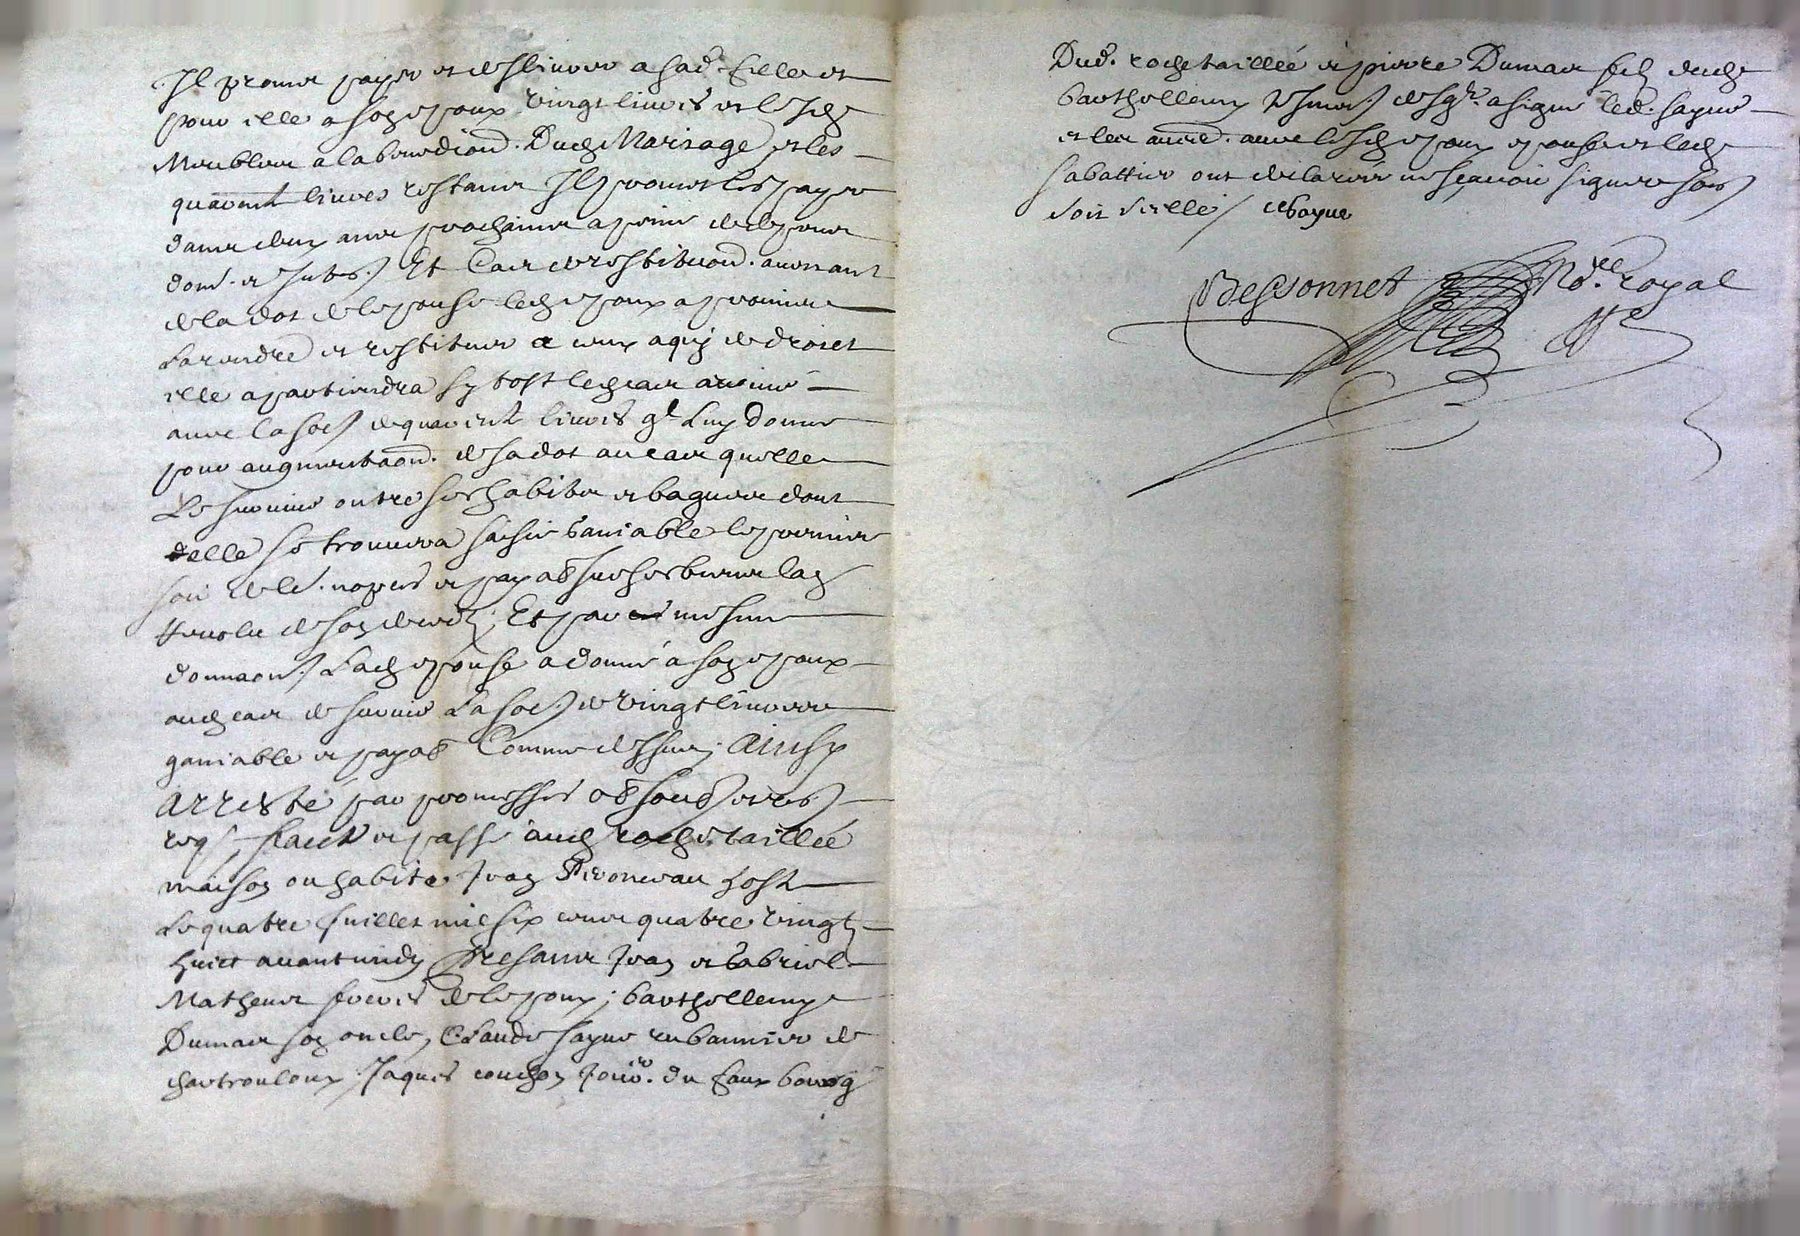 Il promet payer et deslivrer a sad. fille et
pour elle a son epoux vingt livres et lesd.
Meubles a la benediction. Dud. Mariage, et les
quarente livres restans Il promet les payer
dans deux ans prochains a peine de depens
dom. et Intes. Et Cas de restituon. avenant
de la dot de lepouse led. epoux a promis
La rendre et restituer a ceux a qui de droict
elle apartiendra sy tost led. cas avenu
avec la som. de quarente livres q.l Luy donne
pour augmentaon. de sa dot au cas quelle
Le survive outre ses habits et bagues dont
elle se trouvera saisie ganiable le premier
soir de leurs nopces et payab. sur ses biens lan
revolu de son deces; Et par mesme
donnaon. Lad. epouse a donné a son epoux
aud. cas de survie La som. de vingt livres
ganiable et payab. Comme dessus; Ainsy
Arresté par promesses ob. soub. et res.
req. faict et passé aud. rochetaillée
maison ou habite Jean host
Le quatre Juillet mil six cens quatre vingt
huict avant midy Presans Jean et Gabriel
Matheus freres de lepoux; Barthellemy
Dumas son oncle, Claude sayue rubannier de
chartrouloux, Jaques couchon Jour. du faux bourg
Dud. rochetaillée et pierre Dumas fils dud.
Barthellemy tesmoins desq. a signé led. sayue
et les autres. avec lesd. epoux epouse et lad.
sabattier ont declarer ne scavoir signer
soit scellé
Bessonnet No.re royal